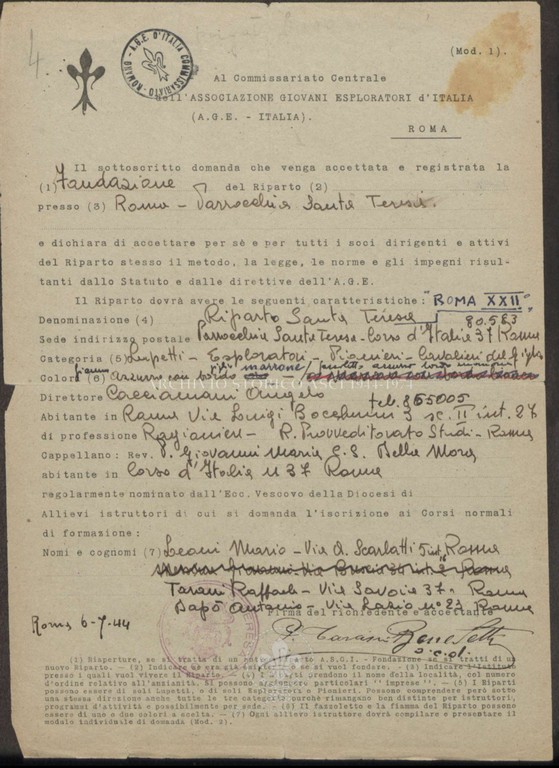 4
A.G.E. D'ITALIA COMMISSARIATO - ROMANO
(Mod. 1).
Al Commissariato Centrale
dell'ASSOCIAZIONE GIOVANI ESPLORATORI d'ITALIA
(A.G.E. - ITALIA).
ROMA
Il sottoscritto domanda che venga accettata e registrata la
(1) Fondazione del Riparto (2)
presso (3) Roma - Parrocchia Santa Teresa.
e dichiara di accettare per sè e per tutti i soci dirigenti e attivi
del Riparto stesso il metodo, la legge, le norme e gli impegni risul-
tanti dallo Statuto e dalle direttive dell'A.G.E.
Il Riparto dovrà avere le seguenti caratteristiche: "ROMA XXII"
Denominazione (4) Riparto Santa Teresa 80.583
Sede indirizzo postale Parrocchia Santa Teresa - Corso d'Italia 37 Roma
Categoria (5) Lupetti - Esploratori - Pionieri - Cavalieri del
Colori (6) azzurro con bordo marrone
ARCHIVIO STORICO
Direttore Cacciamani Angelo tel. 865005
Abitante in Roma Via Luigi Boccherini 3 sc. II int. 27
di professione Ragioniere - R. Provveditorato Studi - Roma
Cappellano: Rev. P. Giovanni Maria C.S. Della Mora
abitante in Corso d'Italia n 37 Roma
regolarmente nominato dall'Ecc. Vescovo della Diocesi di
Allievi istruttori di cui si domanda l'iscrizione ai Corsi normali
di formazione:
Nomi e cognomi (7) Leoni Mario - Via A. Scarlatti 5 int. Roma
Tarani Raffaele - Via Savoia 37 Roma
Dapò Antonio - Via Lazio n° 23 Roma
Firma del richiedente e accettante
Roma 6-7-44
P. Benedetto
o.c.d.
(1) Riaperture, se si tratta di un antico Riparto A.S.C.I. - Fondazione se si tratti di un
nuovo Riparto. - (2) Indicare se era già esistente o se si vuol fondare. - (3) Indicare l'istituto
presso i quali vuol vivere il Riparto. - (4) I Riparti prendono il nome della località, col numero
d'ordine relativo all'anzianità. Si possono aggiungere particolari "imprese". - (5) I Riparti
possono essere di soli Lupetti, o di soli Esploratori e Pionieri. Possono comprendere però sotto
una stessa direzione anche tutte le tre categorie purché rimangano ben distinte per istruttori,
programmi d'attività e possibilmente per sede. - (6) Il fazzoletto e la fiamma del Riparto possono
essere di uno e due colori a scelta. - (7) Ogni allievo istruttore dovrà compilare e presentare il
modulo individuale di domanda (Mod. 2).